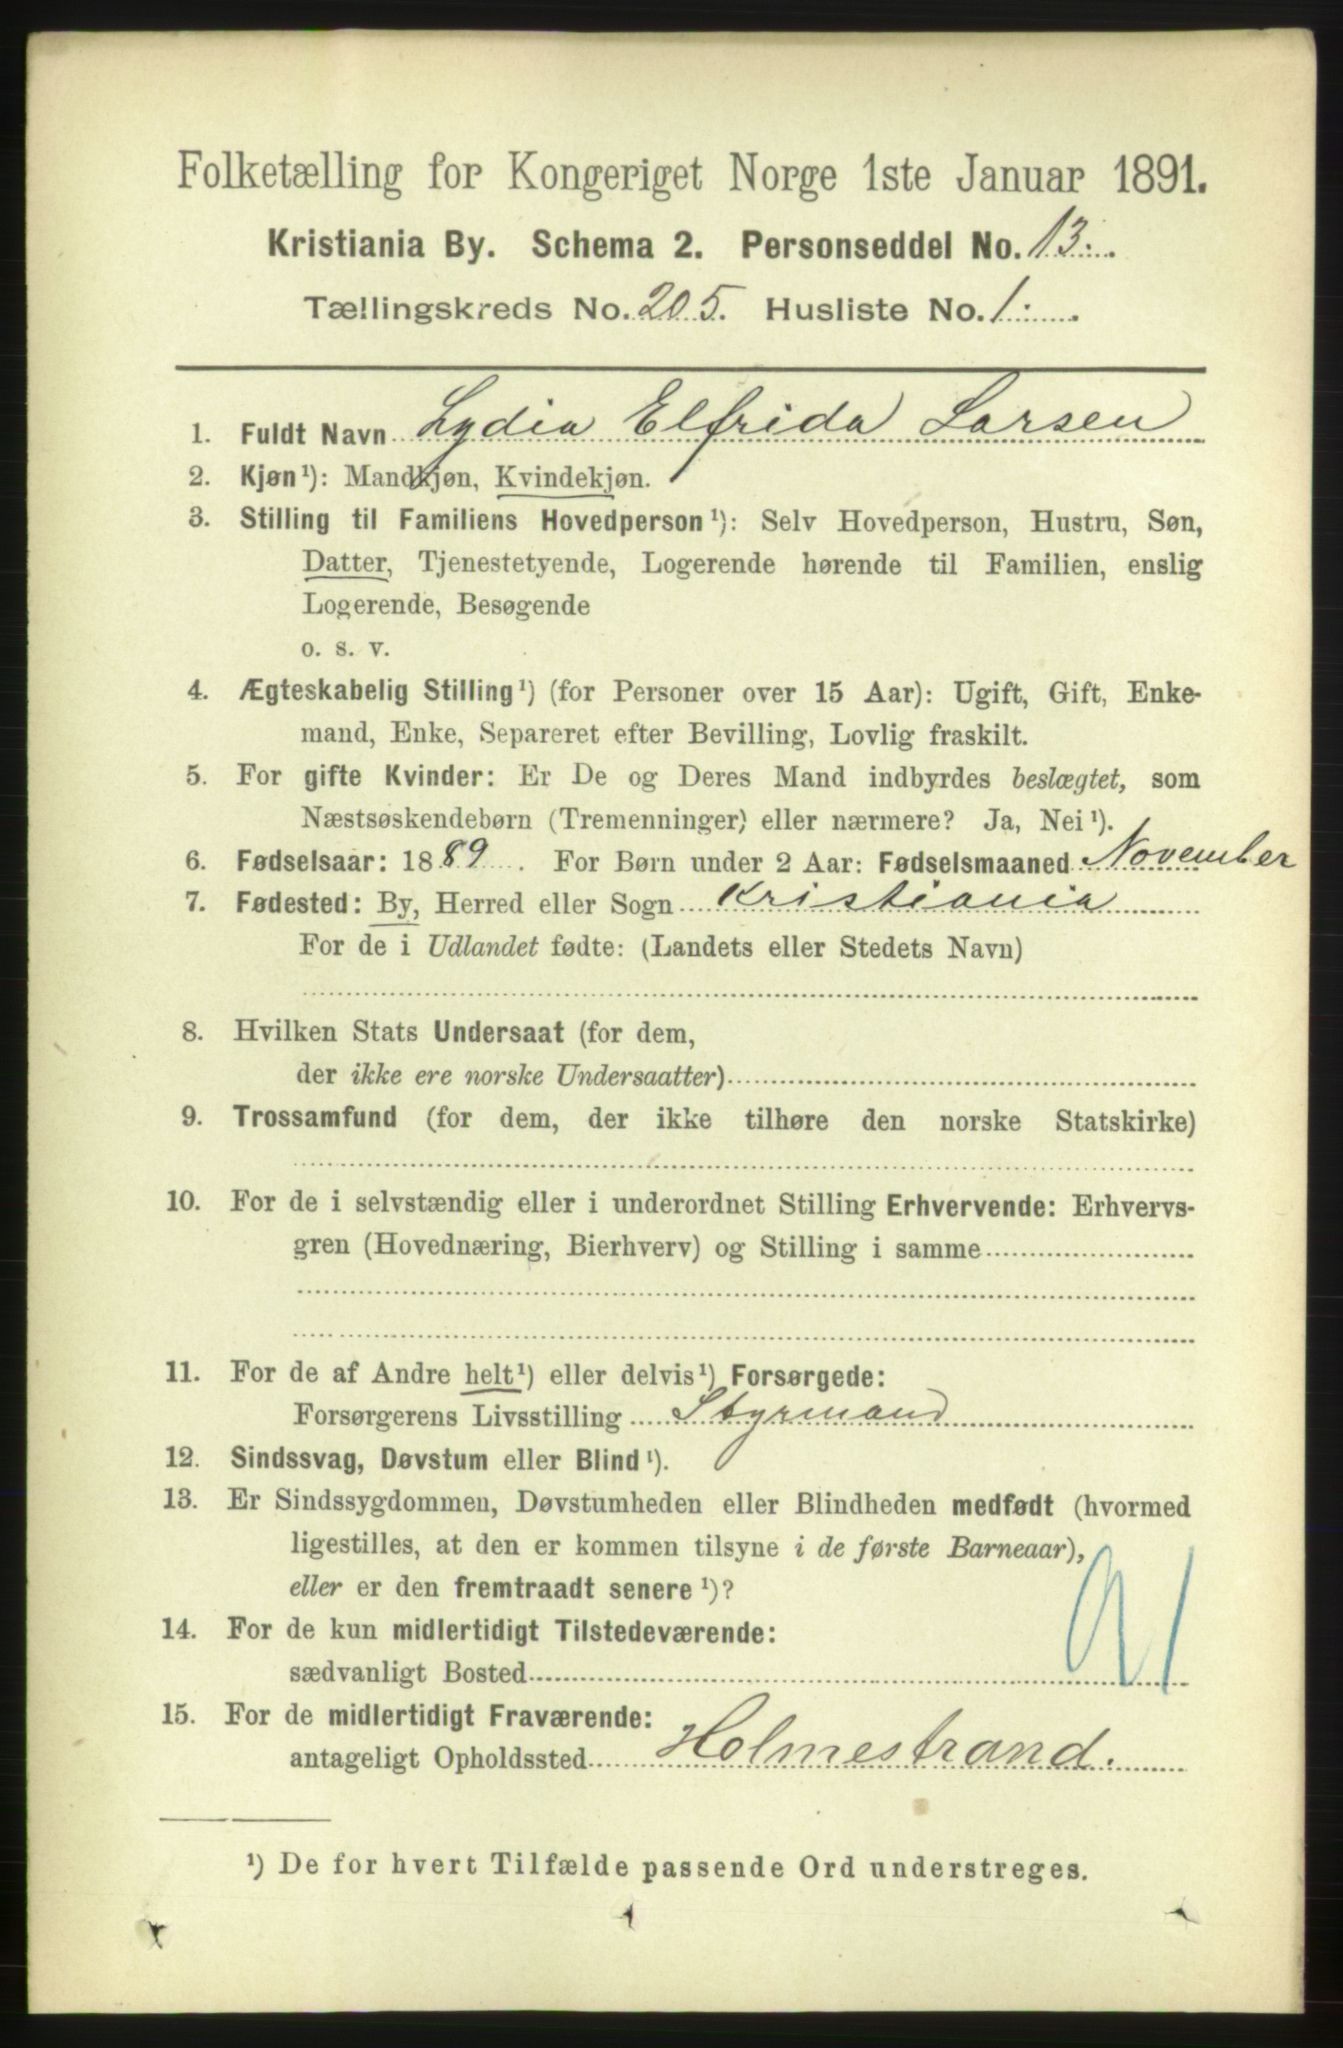 Folketælling for Kongeriget Norge 1ste Januar 1891.
Kristiania By. Schema 2. Personseddel No. 13.
Tællingskreds No. 205. Husliste No. 1.
1. Fuldt Navn Lydia Elfrida Larsen
2. Kjøn¹): Mandkjøn, Kvindekjøn.
3. Stilling til Familiens Hovedperson¹): Selv Hovedperson, Hustru, Søn,
Datter, Tjenestetyende, Logerende hørende til Familien, enslig
Logerende, Besøgende
o. s. v.
4. Ægteskabelig Stilling¹) (for Personer over 15 Aar): Ugift, Gift, Enke-
mand, Enke, Separeret efter Bevilling, Lovlig fraskilt.
5. For gifte Kvinder: Er De og Deres Mand indbyrdes beslægtet, som
Næstsøskendebørn (Tremenninger) eller nærmere? Ja, Nei¹).
6. Fødselsaar: 1889. For Børn under 2 Aar: Fødselsmaaned November
7. Fødested: By, Herred eller Sogn Kristiania
For de i Udlandet fødte: (Landets eller Stedets Navn)
8. Hvilken Stats Undersaat (for dem,
der ikke ere norske Undersaatter)
9. Trossamfund (for dem, der ikke tilhøre den norske Statskirke)
10. For de i selvstændig eller i underordnet Stilling Erhvervende: Erhvervs-
gren (Hovednæring, Bierhverv) og Stilling i samme
11. For de af Andre helt¹) eller delvis¹) Forsørgede:
Forsørgerens Livsstilling Styrmand
12. Sindssvag, Døvstum eller Blind¹).
13. Er Sindssygdommen, Døvstumheden eller Blindheden medfødt (hvormed
ligestilles, at den er kommen tilsyne i de første Barneaar),
eller er den fremtraadt senere¹)?
91
14. For de kun midlertidigt Tilstedeværende:
sædvanligt Bosted
15. For de midlertidigt Fraværende:
antageligt Opholdssted Holmestrand.
¹) De for hvert Tilfælde passende Ord understreges.